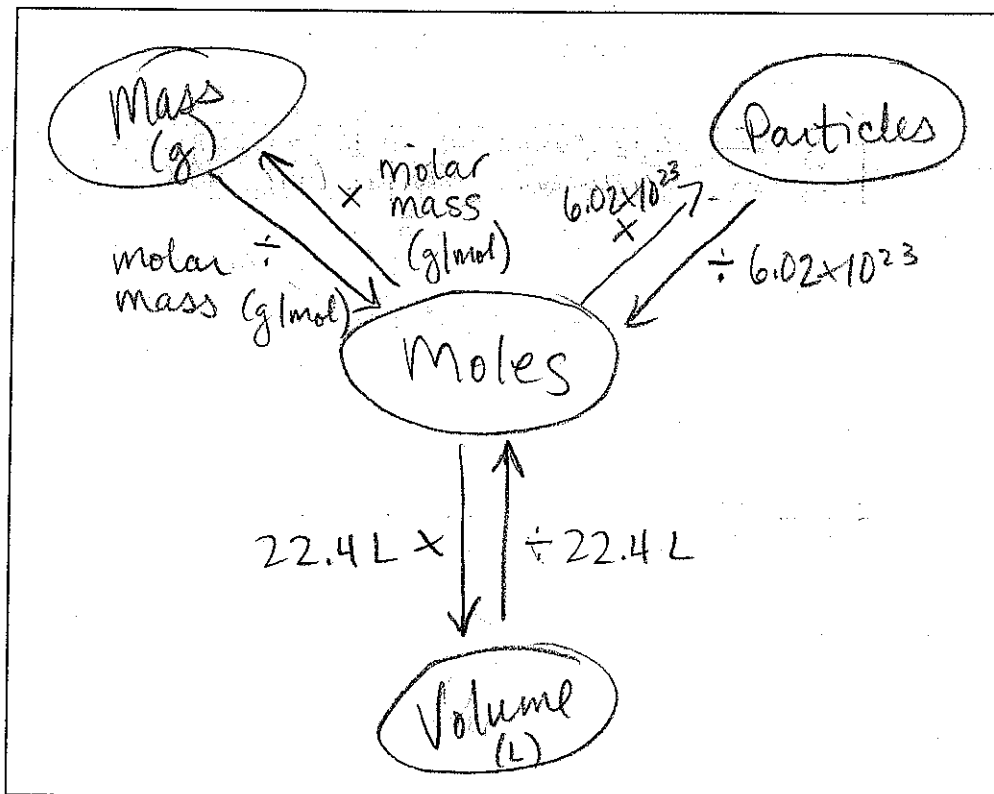 Mass
(g)
Particles
× molar
mass
(g/mol)
÷
molar
mass (g/mol)
6.02×10²³
×
÷ 6.02×10²³
Moles
22.4 L ×
÷ 22.4 L
Volume
(L)